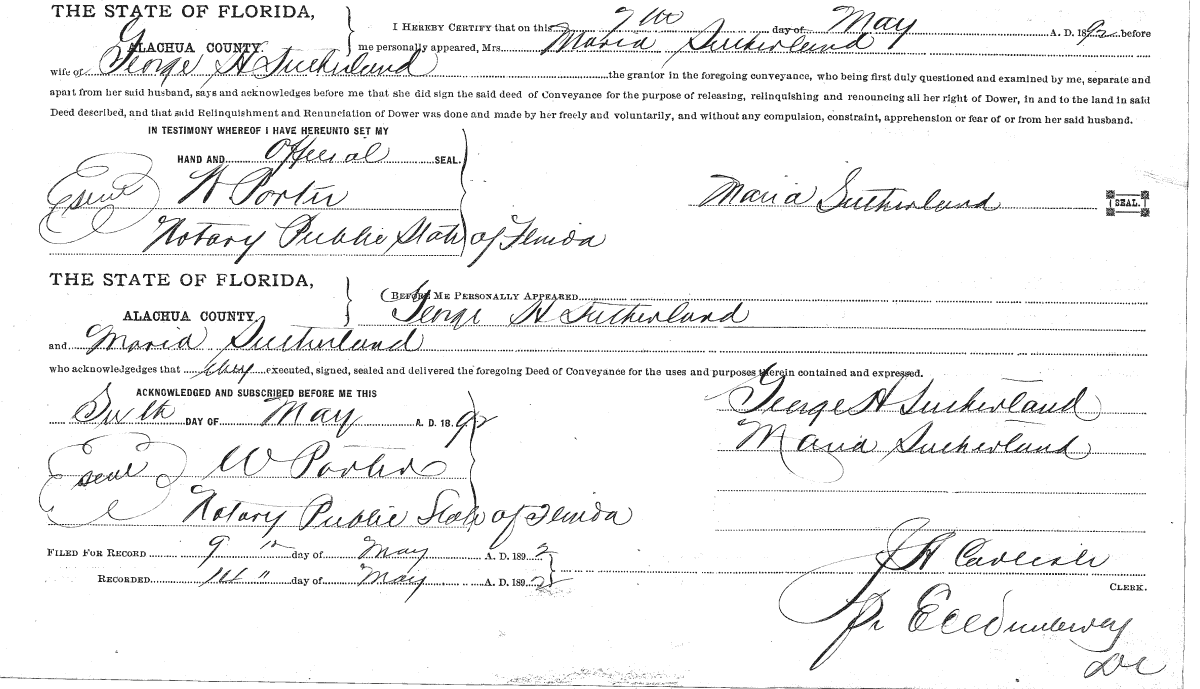 THE STATE OF FLORIDA,
ALACHUA COUNTY.
I HEREBY CERTIFY that on this 7th day of May A. D. 1892 before
me personally appeared, Mrs. Maria Sutherland
wife of George H Sutherland the grantor in the foregoing conveyance, who being first duly questioned and examined by me, separate and
apart from her said husband, says and acknowledges before me that she did sign the said deed of Conveyance for the purpose of releasing, relinquishing and renouncing all her right of Dower, in and to the land in said
Deed described, and that said Relinquishment and Renunciation of Dower was done and made by her freely and voluntarily, and without any compulsion, constraint, apprehension or fear of or from her said husband.
IN TESTIMONY WHEREOF I HAVE HEREUNTO SET MY
HAND AND official SEAL.
seal W Porter
Maria Sutherland SEAL.
Notary Public State of Florida
THE STATE OF FLORIDA,
ALACHUA COUNTY
(BEFORE ME PERSONALLY APPEARED
George H Sutherland
and Maria Sutherland
who acknowledgedges that they executed, signed, sealed and delivered the foregoing Deed of Conveyance for the uses and purposes therein contained and expressed.
ACKNOWLEDGED AND SUBSCRIBED BEFORE ME THIS
Sixth DAY OF May A. D. 18 92
George H Sutherland
Maria Sutherland
seal W Porter
Notary Public State of Florida
FILED FOR RECORD 9 day of May A. D. 1892
J H Carlisle
RECORDED 14 " day of May A. D. 1892
CLERK.
DC